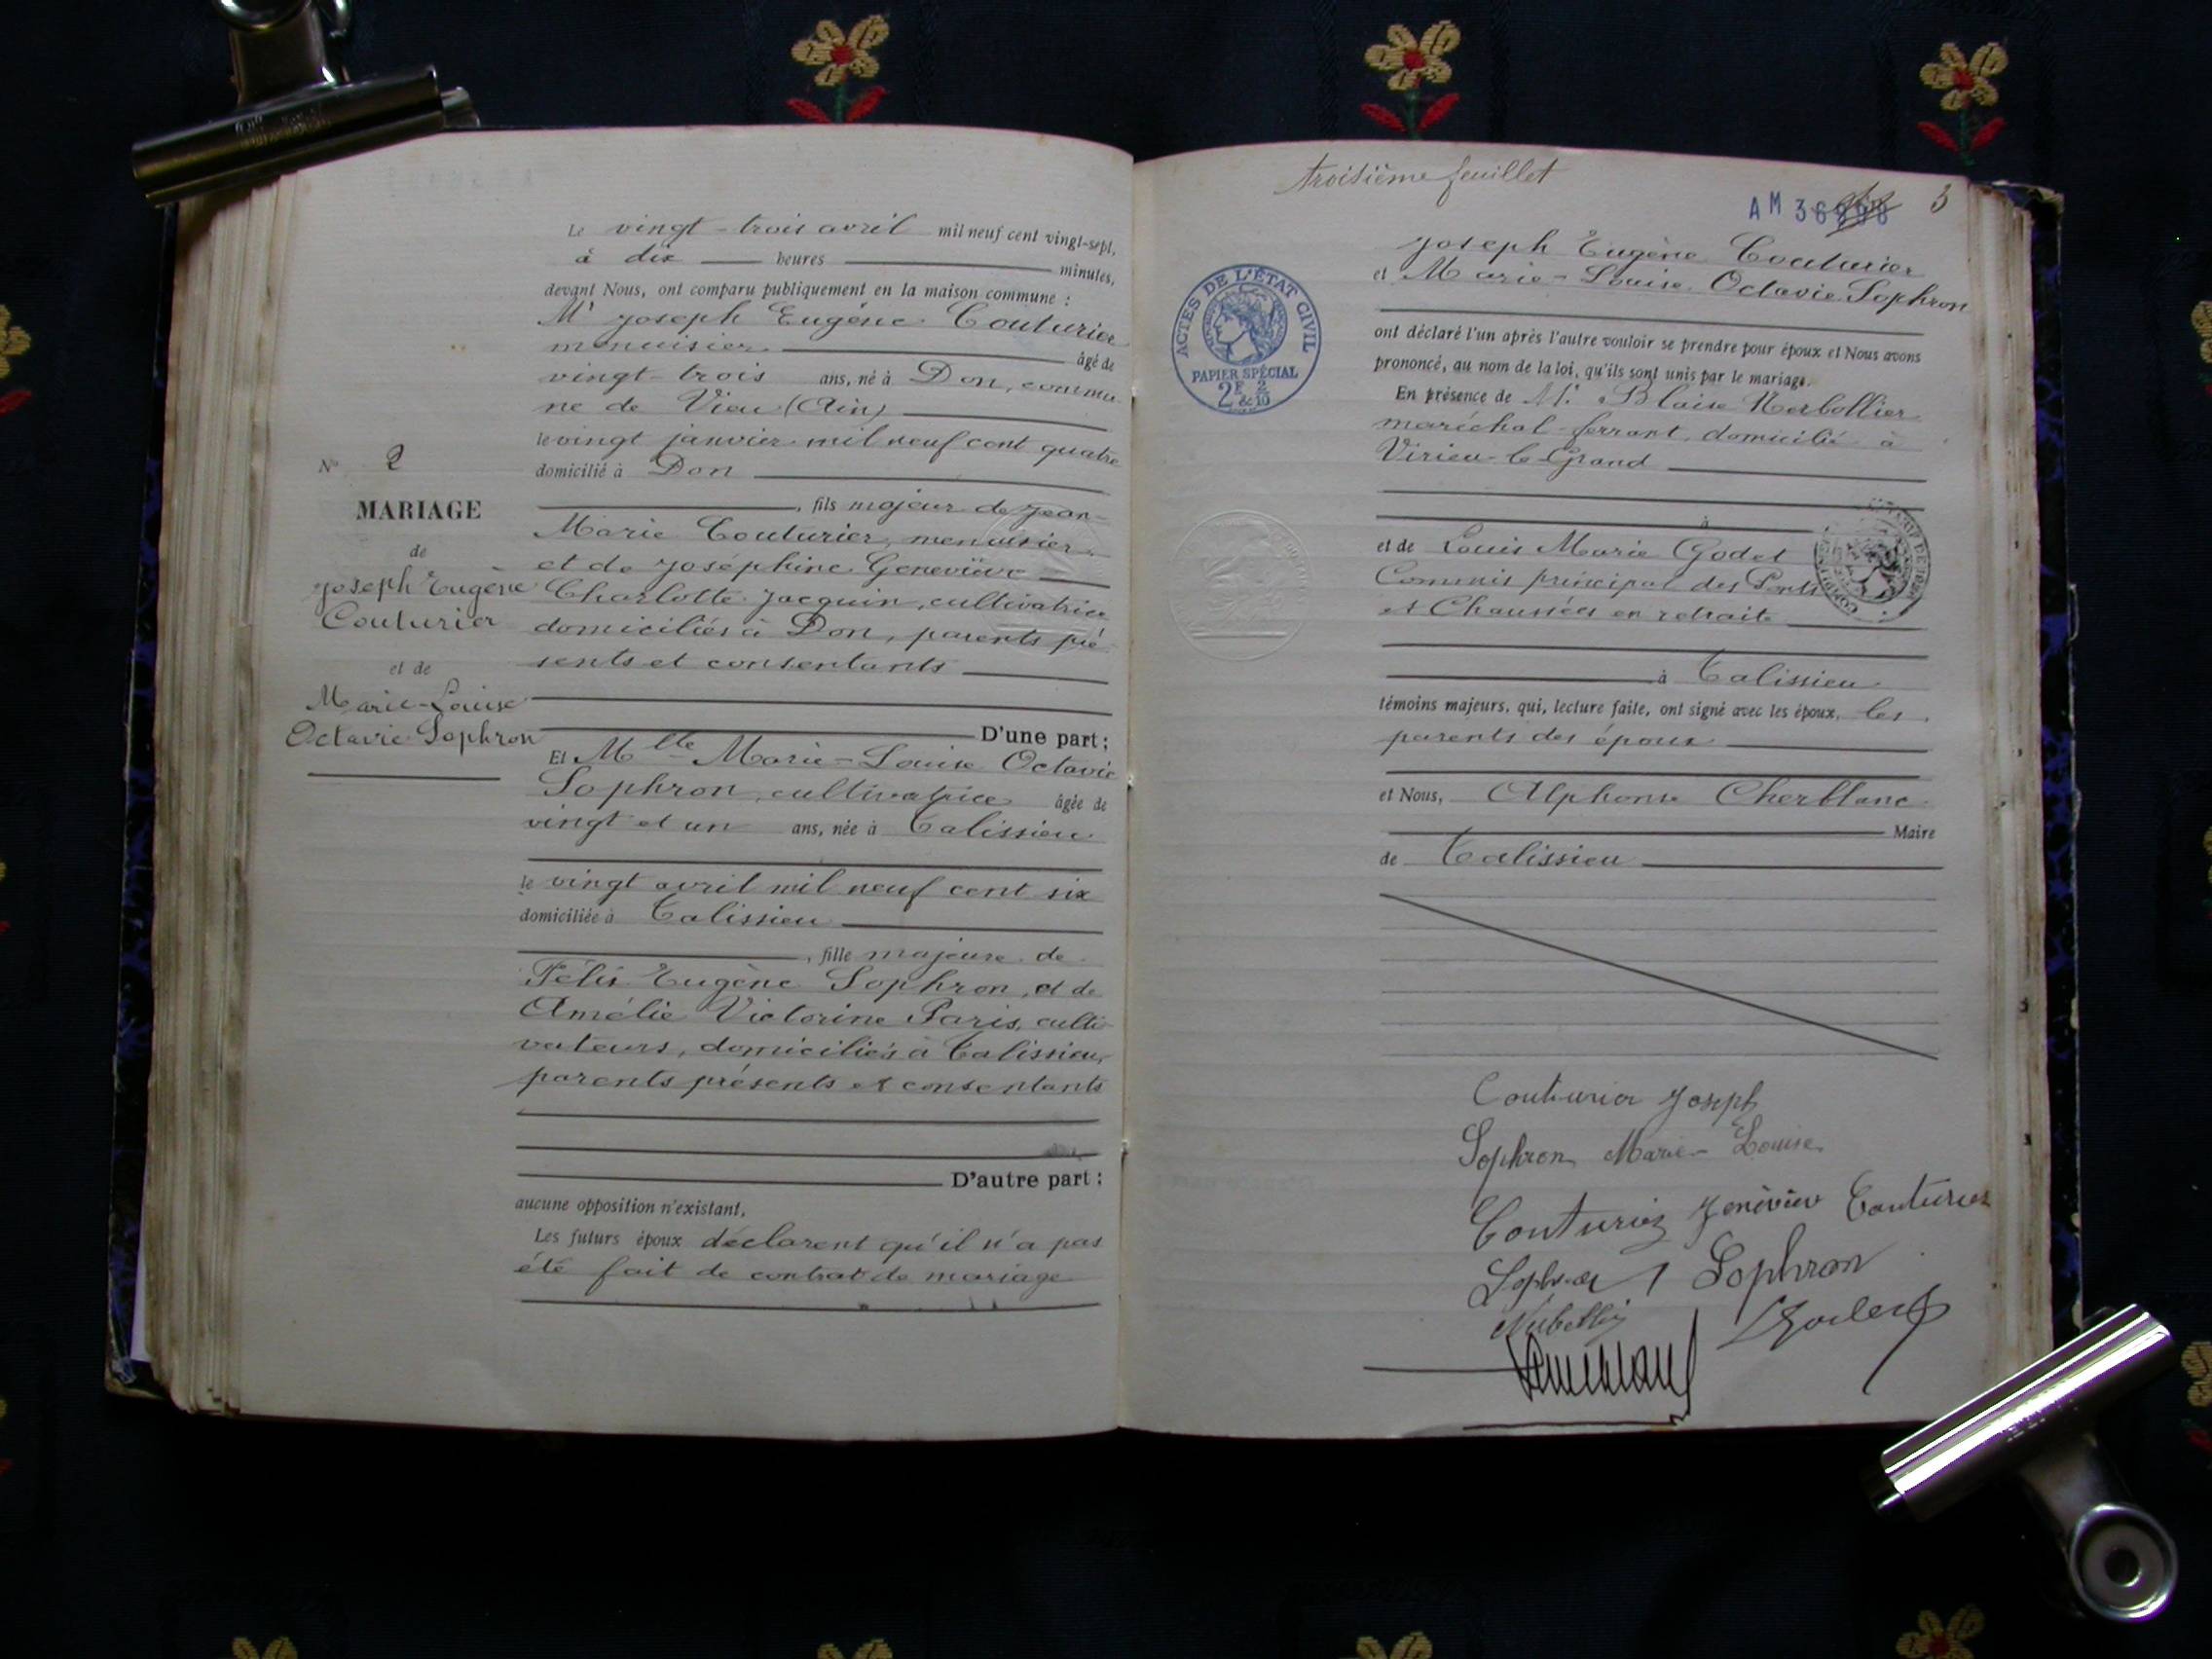 Le vingt-trois avril mil neuf cent vingt-sept,
à dix heures minutes,
devant Nous, ont comparu publiquement en la maison commune :
Mr Joseph Eugène Couturier
menuisier âgé de
vingt-trois ans, né à Don, commu-
ne de Vieu (Ain)
le vingt janvier mil neuf cent quatre
domicilié à Don
, fils majeur de Jean-
Marie Couturier, menuisier
et de Joséphine Geneviève
Charlotte Jacquin, cultivatrice
domiciliés à Don, parents pré-
sents et consentants
D'une part ;
N° 2
MARIAGE
de
Joseph Eugène
Couturier
et de
Marie-Louise
Octavie Sophron
Et Mlle Marie-Louise Octavie
Sophron, cultivatrice âgée de
vingt et un ans, née à Talissieu
le vingt avril mil neuf cent six
domiciliée à Talissieu
, fille majeure de
Félix Eugène Sophron, et de
Amélie Victorine Paris, culti-
vateurs, domiciliés à Talissieu,
parents présents et consentants
D'autre part :
aucune opposition n'existant,
Les futurs époux déclarent qu'il n'a pas
été fait de contrat de mariage
troisième feuillet
AM 36 3
ACTES DE L'ÉTAT CIVIL
PAPIER SPÉCIAL
2F & 2/10
Joseph Eugène Couturier
et Marie-Louise Octavie Sophron
ont déclaré l'un après l'autre vouloir se prendre pour époux et Nous avons
prononcé, au nom de la loi, qu'ils sont unis par le mariage.
En présence de Mr Blaise
maréchal-ferrant, domicilié à
Virieu-le-Grand
à
et de Louis Marie Godet
Commis principal des Ponts
et Chaussées en retraite
à Talissieu
témoins majeurs, qui, lecture faite, ont signé avec les époux, les
parents des époux
et Nous, Alphonse Cherblanc
Maire
de Talissieu
Couturier Joseph
Sophron Marie-Louise
Couturier Couturier
Sophron